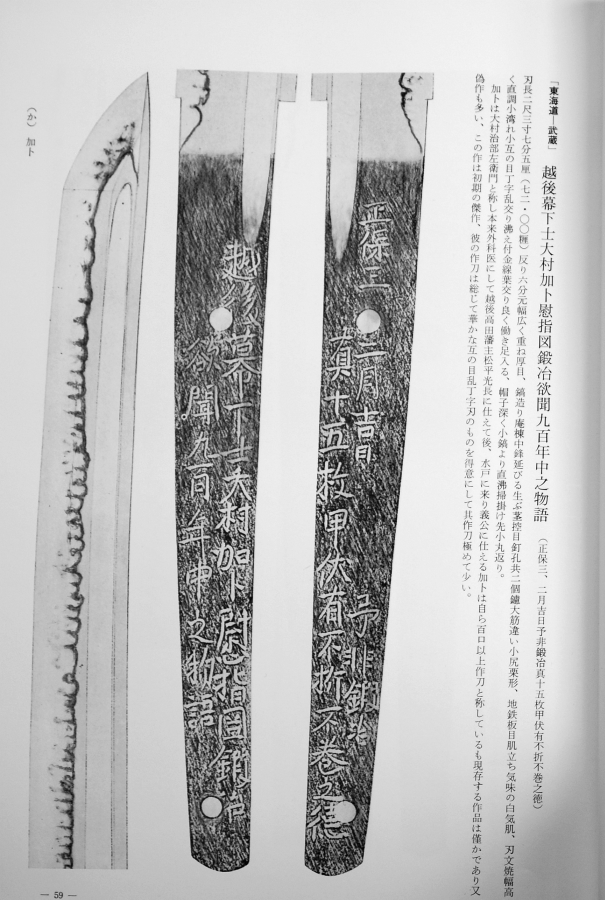 「東海道―武蔵」 越後幕下士大村加卜慰指図鍛冶欲聞九百年中之物語 (正保三、二月吉日予非鍛冶真十五枚甲伏有不折不巻之徳)
刃長二尺三寸七分五厘(七二・〇〇糎)反り六分元幅広く重ね厚目、鎬造り庵棟中鋒延びる生ぶ茎控目釘孔共二個鑢大筋違い小尻栗形、地鉄板目肌立ち気味の白気肌、刃文焼幅高
く直調小湾れ小互の目丁字乱交り沸え付金線葉交り良く働き足入る、帽子深く小鎬より直沸掃掛け先小丸返り。
加卜は大村治部左衛門と称し本来外科医にして越後高田藩主松平光長に仕えて後、水戸に来り義公に仕える加卜は自ら百口以上作刀と称しているも現存する作品は僅かであり又
偽作も多い、この作は初期の傑作、彼の作刀は総じて華かな互の目乱丁字刃のものを得意にして其作刀極めて少い。
正保三二月吉日 予非鍛冶
真十五枚甲伏有不折不巻之徳
越後幕下士大村加卜慰指図鍛冶
欲聞九百年中之物語
(か) 加卜
― 59 ―